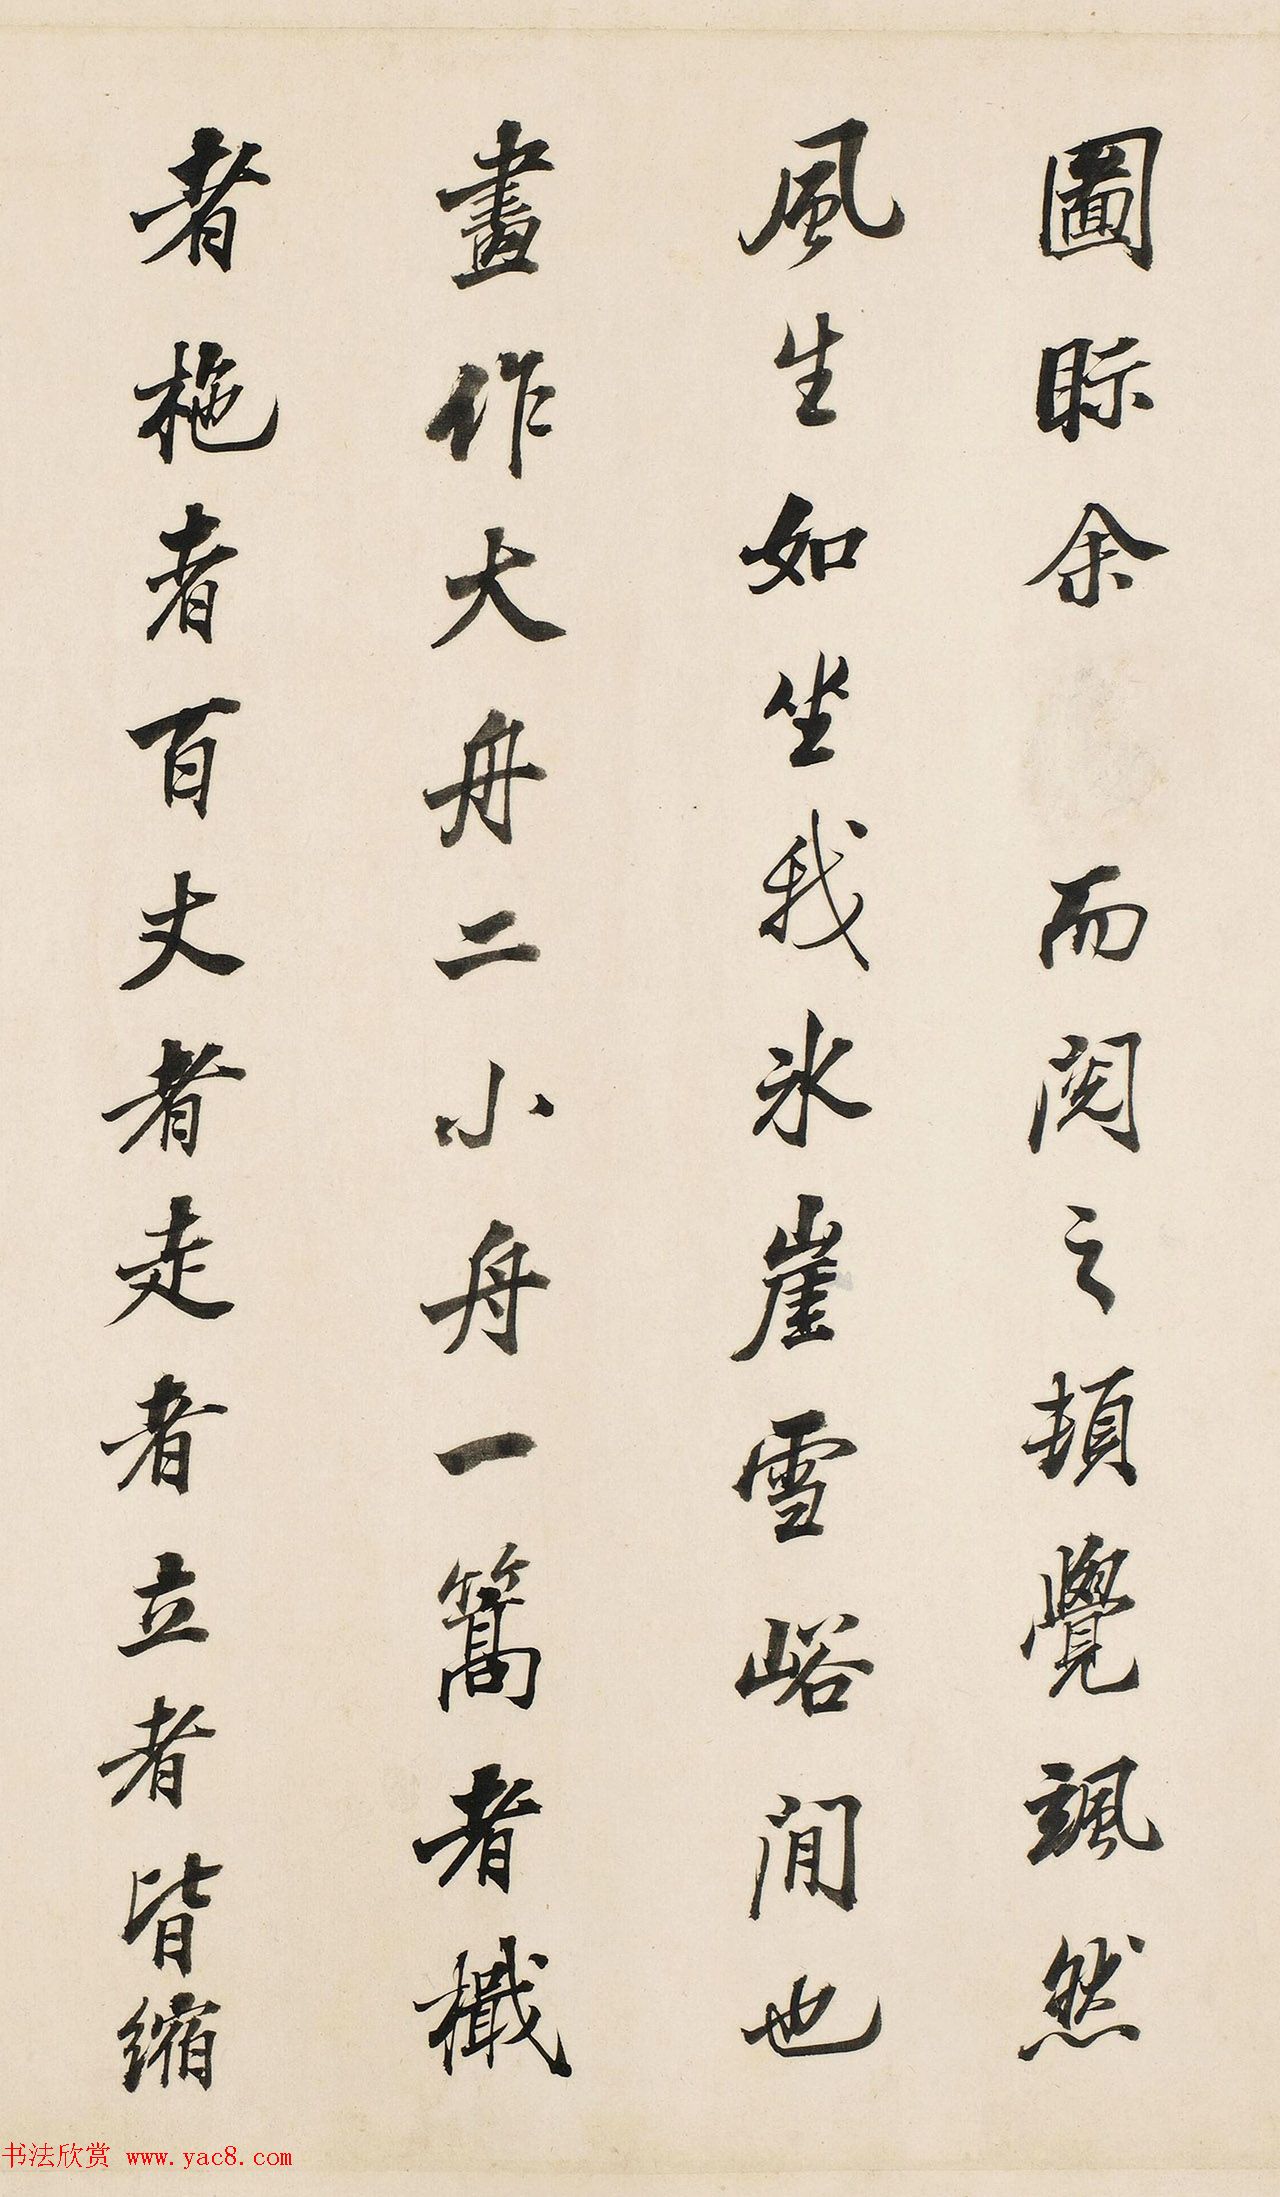 圖眎余而閱之頓覺颯然
風生如坐我氷崖雪峪間也
畫作大舟二小舟一篙者檝
者柂者百丈者走者立者皆縮
书法欣赏 www.yac8.com